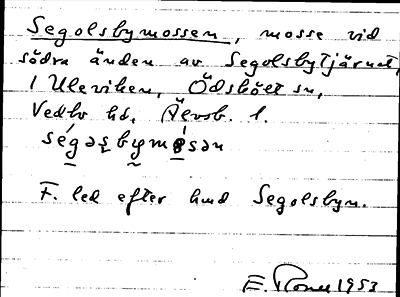 Segolsbymossen, mosse vid
södra änden av Segolsbytjärnet,
i Uleviken, Ödskölt sn,
Vedbo hd, Älvsb. l.
ségəs̨bymo̱sən
F. led efter hmd Segolsbyn.
E. 1953